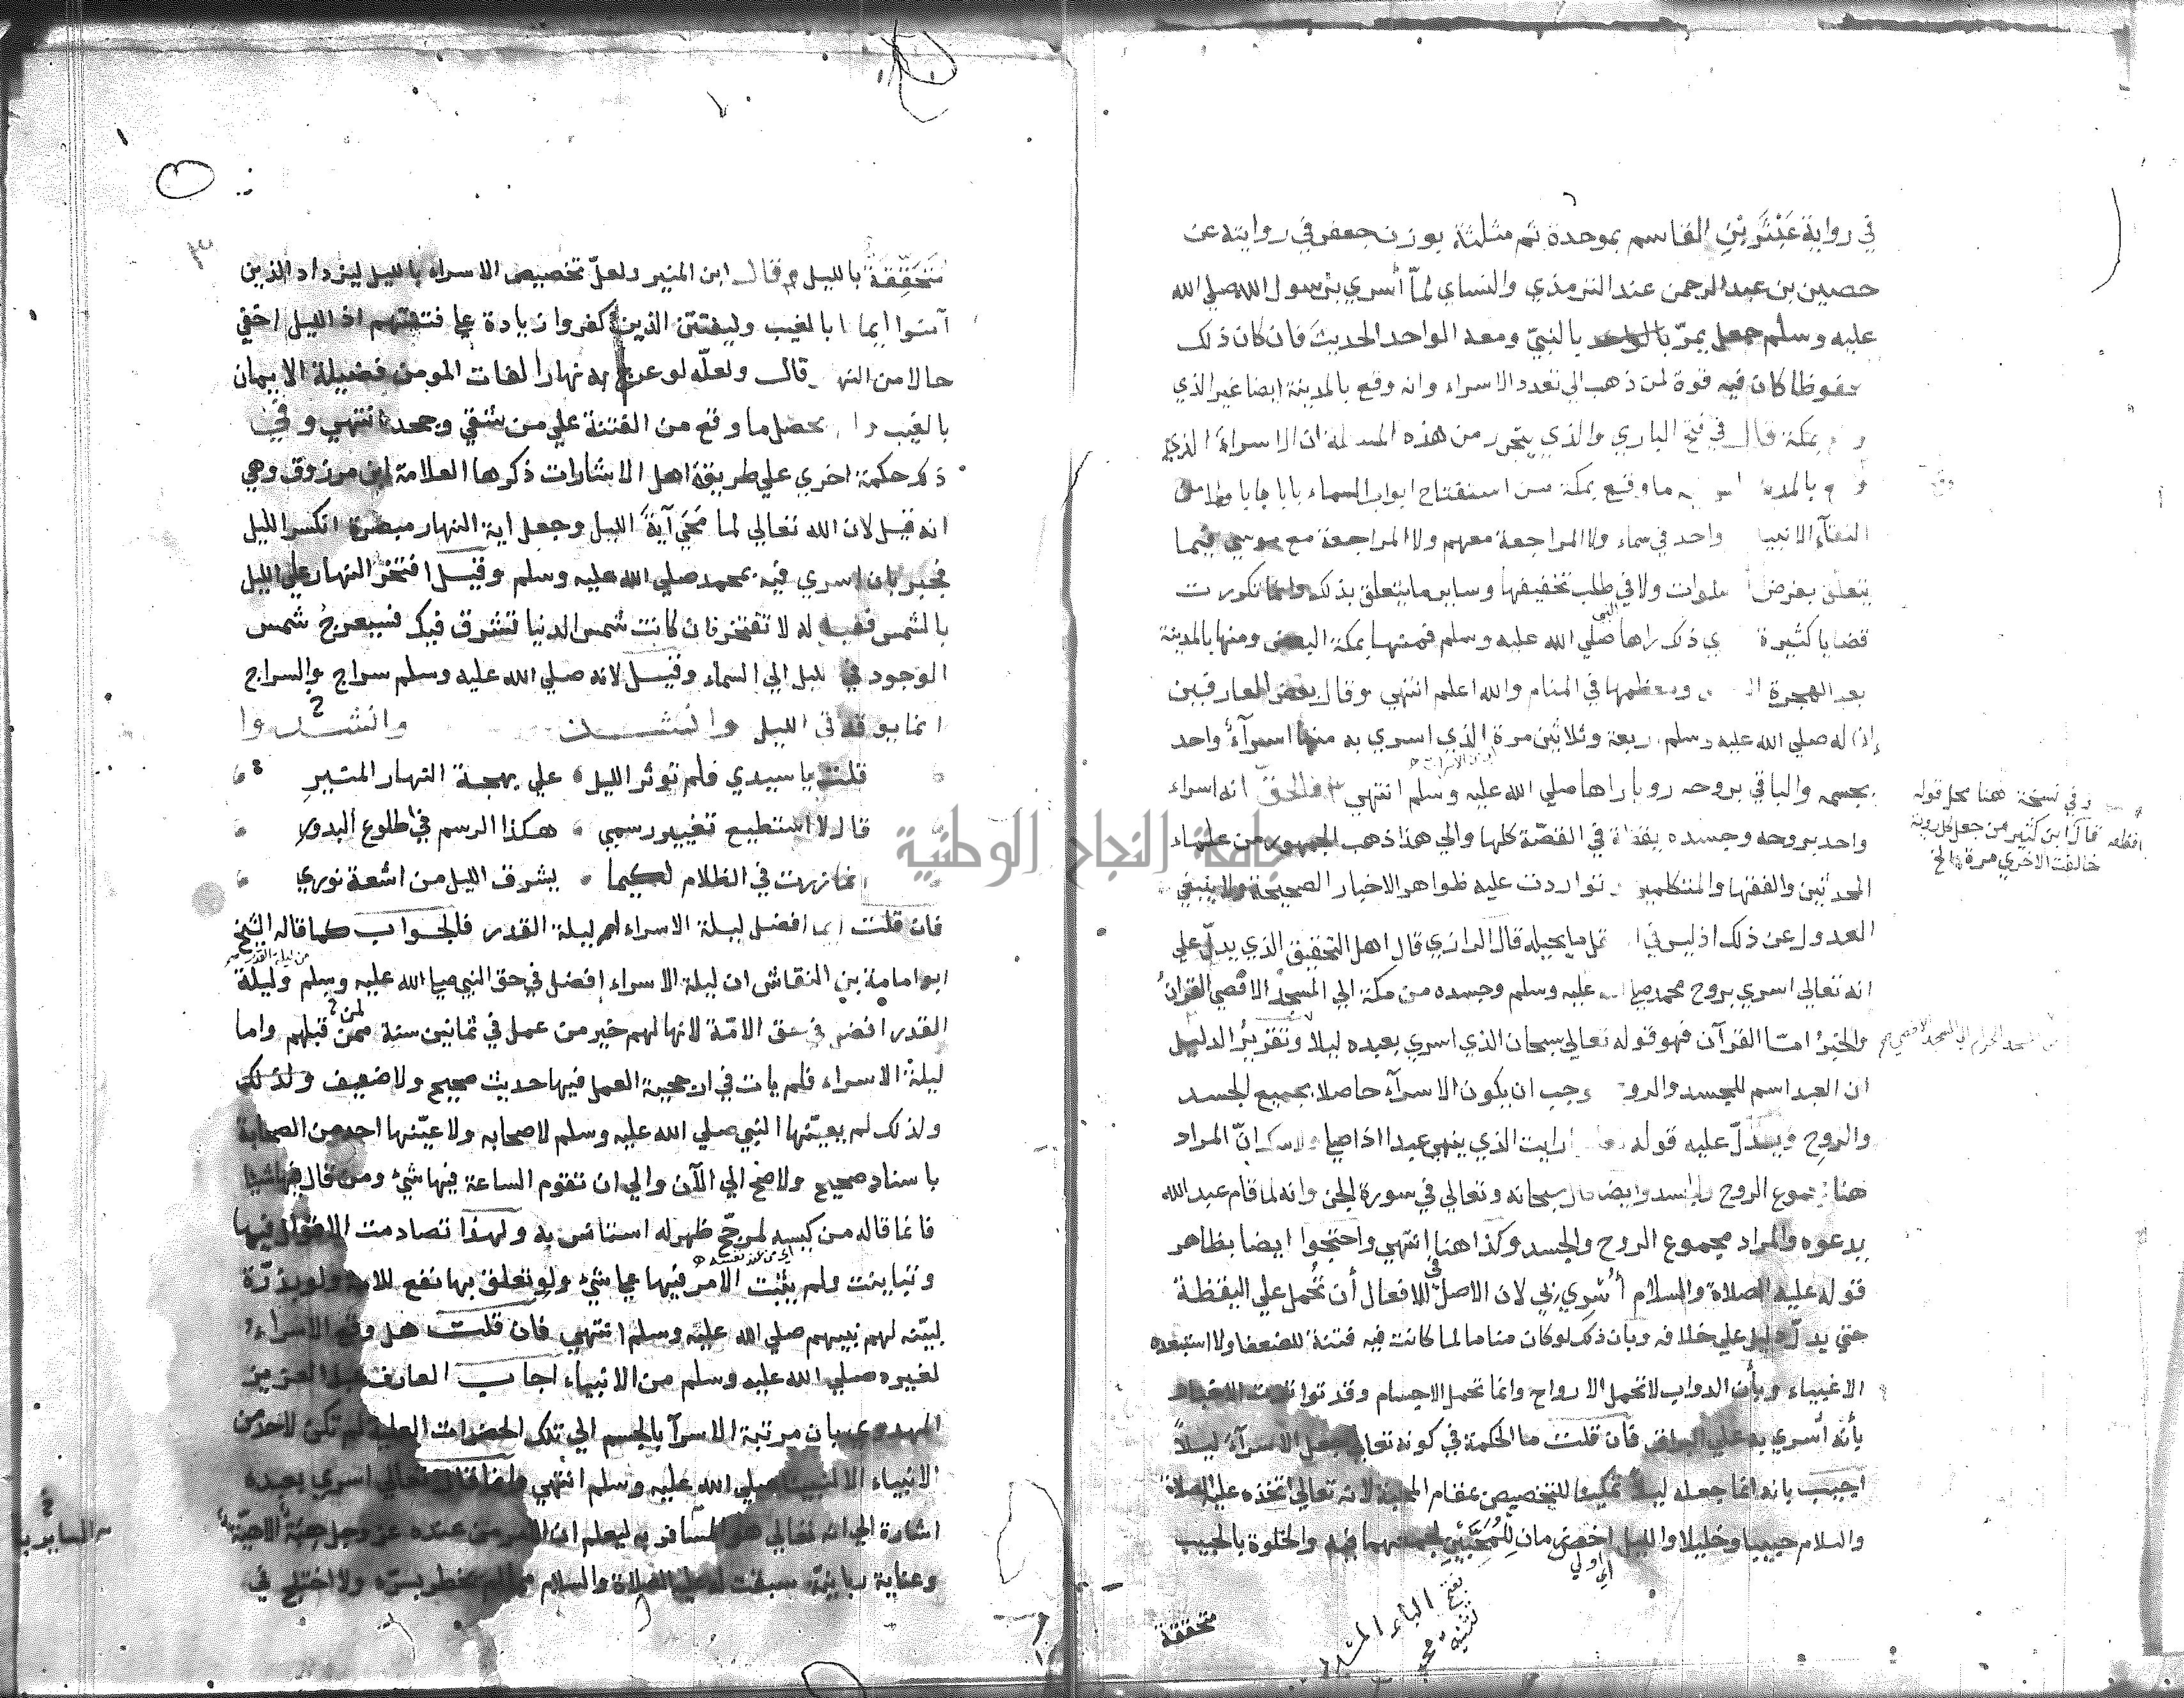 في رواية عَبْثَر بْنِ القاسم بموحدة ثم مثلثة بوزن جعفر في روايته عن
حصين بن عبد الرحمن عند الترمذي والنساي لمّا أسري برسول الله صلي الله
عليه وسلم جعل يمرّ بالنبيّ ومعه الواحد الحديث فان كان ذلك
كان فيه قوة لمن ذهب الي تعدد الاسراء وانه وقع بالمدينة ايضا غير الذي
بمكة قال في فتح الباري والذي يتحرر من هذه المسالة ان الاسراء الذي
ما وقع بمكة من استفتاح ابواب السماء بابا بابا ولا من
التقآء الانبيا واحد في سماء ولا المراجعة معهم ولا المراجعة مع موسي فيما
يتعلق بفرض ولا في طلب تخفيفها وساير ما يتعلق بذلك وانما تكررت
قضايا كثيرة ذلك راها النبي صلي الله عليه وسلم فمنها بمكة البعض ومنها بالمدينة
بعد الهجرة ومعظمها في المنام والله اعلم انتهي وقال بعض العارفين
إن له صلي الله عليه وسلم اربعة وثلاثين مرة الذي اسري به منها اسرآء واحد
بجسمه والباقي بروحه رويا راها صلي الله عليه وسلم انتهي فالحق انه اسراء
واحد بروحه وجسده يقظة في القصّة كلها والي هذا ذهب الجمهور من علماء
المحدثين والفقها والمتكلمين وتواردت عليه ظواهر الاخبار الصحيحة ولا ينبغي
العدول عن ذلك اذ ليس في ما يحيله قال الرازي قال اهل التحقيق الذي يدلّ علي
انه تعالي اسري بروح محمد صلي عليه وسلم وجسده من مكة الي المسجد الاقصي القرآنُ
والخبرُ امّا القرآن فهو قوله تعالي سبحان الذي اسري بعبده ليلا وتقريرُ الدليل
ان العبد اسم للجسد والروح وجب ان يكون الاسرآء حاصلا بجميع الجسد
والروح ويدلّ عليه قوله ارايت الذي ينهي عبدا اذا صلي انّ المراد
هنا مجموع الروح والجسد وايضا قال سبحانه وتعالي في سورة الجن وانه لما قام عبد الله
يدعوه والمراد مجموع الروح والجسد وكذا هنا انتهي واحتجوا ايضا بظاهر
قوله عليه الصلاة والسلام أُسْرِي بي لان الاصل في الافعال أن تُحمل علي اليقظة
حتي يدلّ دليل علي خلافه وبان ذلك لو كان مناما لما كانت فيه فتنة للضعفا ولا استبعده
الاغبياء وبأن الدواب لا تحمل الارواح وانما تحمل الاجسام وقد تواترت الاخبار
بأنه أسري به علي البراق فان قلت ما الحكمة في كونه تعالي جعل الاسرآء ليلاً
اجيب بانه انما جعله ليلاً تمكينا للتخصيص بمقام المحبة لانه تعالي اتخذه عليه الصلاة
والسلام حبيبا وخليلا والليل اخص زمان لِلْمُحَبَّيْنِ لجمعهما فيه والخلوة بالحبيب
اي اولي
بفتح الباء المشددة
تثنية محب
متحققة
وفي نسخة هنا محل قوله
قال ابن كثير من جعل كل رواية
خالفت الاخري مرة الخ
مُتَحَقِّقَةٌ بالليل قال ابن المنير ولعلّ تخصيص الاسراء بالليل ليزداد الذين
آمنوا ايمانا بالغيب وليفتتن الذين كفروا زيادة علي فتنتهم اذ الليل اخفي
حالا من النهار قال ولعلّه لو عرج به نهارا لفات المومن فضيلة الايمان
بالغيب ولم يحصل ما وقع من الفتنة علي من شقي وجحد انتهي وفي
ذكر حكمة اخري علي طريقة اهل الاشارات ذكرها العلامة ابن مرزوق وهي
انه قيل لان الله تعالي لما مَحَي آيةَ الليل وجعل اية النهار مبصرة انكسر الليل
فجبر بان اسري فيه بمحمد صلي الله عليه وسلم وقيل افتخر النهار علي الليل
بالشمس فقيل له لا تفتخر فان كانت شمس الدنيا تشرق فيك فسيعرج شمس
الوجود في الليل الي السماء وقيل لانه صلي الله عليه وسلم سراج والسراج
انما يوقد في الليل وانشدوا
قلت يا سيدي فلم توثر الليل علي بهجة النهار المنير
قال لا استطيع تغيير رسمي هكذا الرسم في طلوع البدور
انما زرت في الظلام لكيما يشرق الليل من اشعة نوري
فان قلت ايما افضل ليلة الاسراء ام ليلة القدر فالجواب كما قاله الشيخ
ابو امامة بن النقاش ان ليلة الاسراء افضل في حق النبي صلي الله عليه وسلم وليلة
من ليلة القدر
القدر افضل في حق الامّة لانها لهم خير من عمل في ثمانين سنة ممن قبلهم واما
ليلة الاسراء فلم يات في ارجحية العمل فيها حديث صحيح ولا ضعيف ولذلك
ولذلك لم يعيّنها النبي صلي الله عليه وسلم لاصحابه ولا عيّنها احد من الصحابة
باسناد صحيح ولا صح الي الآن والي ان تقوم الساعة فيها شيٌ ومن قال فيها شيا
فانما قاله من كيسه لمرجّح ظهر له استانس به ولهذا تصادمت الاقوال فيها
اي من عند نفسه
وتباينت ولم يثبت الامر فيها علي شيٌ ولو تعلق بها نفع للامة ولو بذرّة
لبيّنه لهم نبيهم صلي الله عليه وسلم انتهي فان قلت هل وقع الاسراء
لغيره صلي الله عليه وسلم من الانبياء اجاب العارف عبد العزيز
المهدوي بان مرتبة الاسرآ بالجسم الي تلك الحضرات العلية لم تكن لاحد من
الانبياء الا لنبينا صلي الله عليه وسلم انتهي وانما قال تعالي اسري بعبده
اشارة الي انه تعالي هو المسافر به ليعلم ان الاسرا من عنده عز وجل هبة الاهيّة
وعناية ربانيّة سبقت له عليه الصلاة والسلام مما لم يخطر بسرّه ولا اختلج في
جامعة النجاح الوطنية